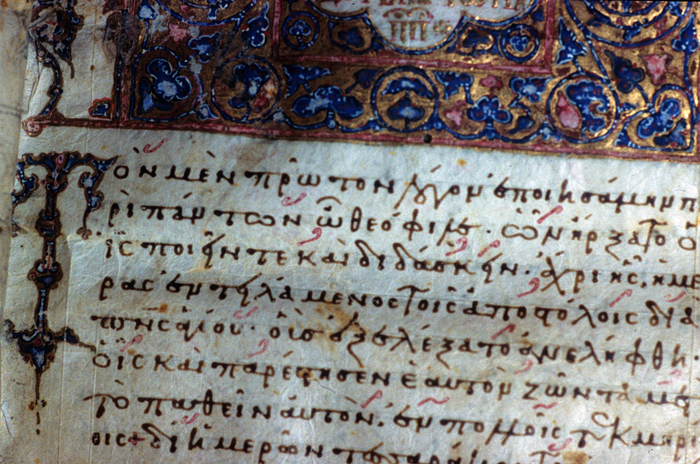 Τὸν μὲν πρῶτον λόγον ἐποιησάμην π
ρὶ πάντων ὦ θεόφιλε· ὧν ἤρξατο ὁ
ις ποιῆν τε καὶ διδάσκην· ἄχρι ἧς ἡμ
ρας ἐντηλάμενος τοῖς ἀποστόλοις διὰ
πνς ἁγίου· οὓς ἐξελέξατο ἀνελήφθη
οἷς καὶ παρέστησεν ἑαυτὸν ζῶντα με
τὸ παθεῖν αὐτὸν, ἐν πολλοῖς τεκμηρ
οις + δι ἡμερῶν